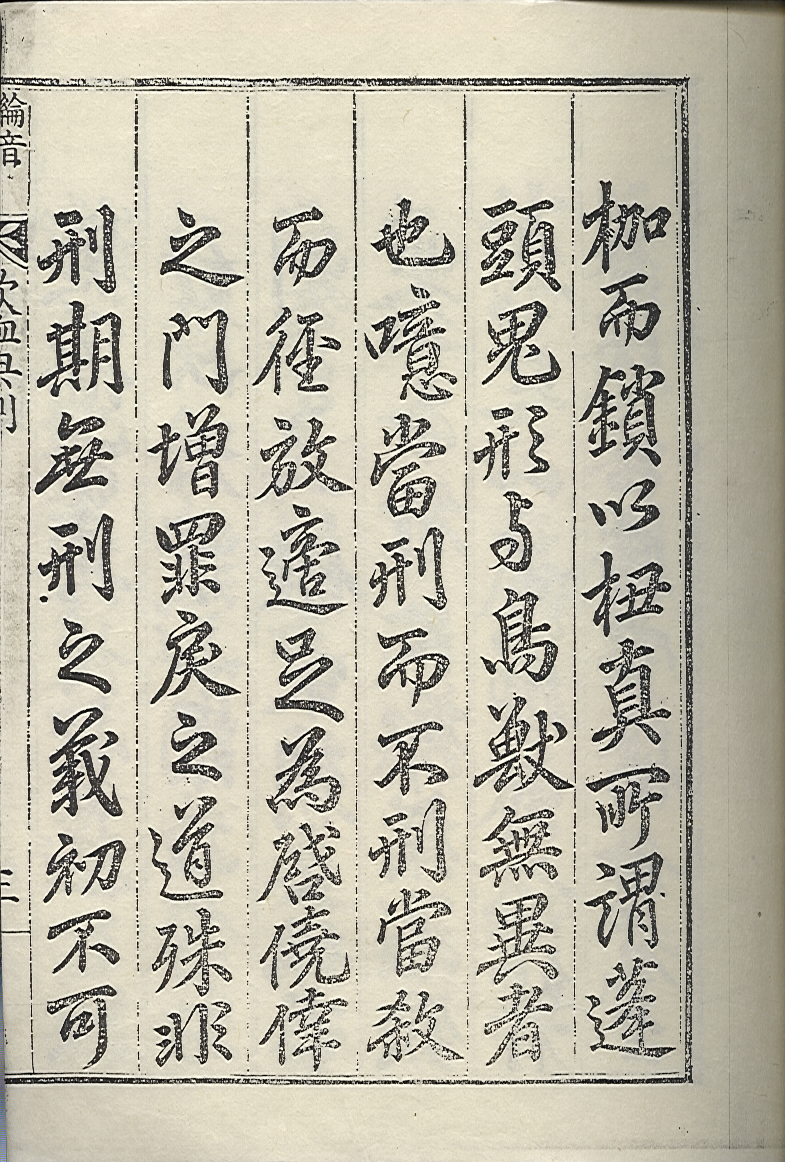 枷而鎖以杻真所謂蓬
頭鬼形与鳥獸無異者
也噫當刑而不刑當赦
而徑放適足為啓僥倖
之門增罪戾之道殊非
刑期無刑之義初不可
綸音
三